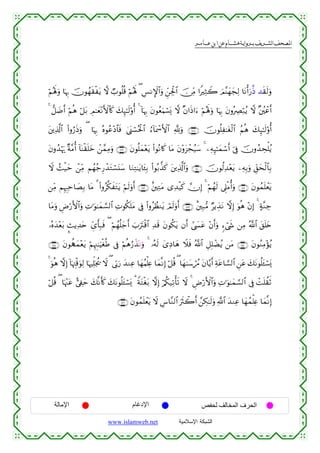 المصحف الشريف برواية هشام عن ابن عامر
وَلَقَدْ ذَرَأْنَا لِجَهَنَّمَ كَثِيرًا مِّنَ ٱلْجِنِّ وَٱلْإِنسِ ۖ لَهُمْ قُلُوبٌ لَّا يَفْقَهُونَ بِهَا وَلَهُمْ
أَعْيُنٌ لَّا يُبْصِرُونَ بِهَا وَلَهُمْ ءَاذَانٌ لَّا يَسْمَعُونَ بِهَا ۚ أُو۟لَٰٓئِكَ كَٱلْأَنْعَٰمِ بَلْ هُمْ أَضَلُّ ۚ
أُو۟لَٰٓئِكَ هُمُ ٱلْغَٰفِلُونَ ﴿١٧٩﴾ وَلِلَّهِ ٱلْأَسْمَآءُ ٱلْحُسْنَىٰ فَٱدْعُوهُ بِهَا ۖ وَذَرُوا۟ ٱلَّذِينَ
يُلْحِدُونَ فِىٓ أَسْمَٰٓئِهِۦ ۚ سَيُجْزَوْنَ مَا كَانُوا۟ يَعْمَلُونَ ﴿١٨٠﴾ وَمِمَّنْ خَلَقْنَآ أُمَّةٌ يَهْدُونَ
بِٱلْحَقِّ وَبِهِۦ يَعْدِلُونَ ﴿١٨١﴾ وَٱلَّذِينَ كَذَّبُوا۟ بِـَٔايَٰتِنَا سَنَسْتَدْرِجُهُم مِّنْ حَيْثُ لَا
يَعْلَمُونَ ﴿١٨٢﴾ وَأُمْلِى لَهُمْ ۚ إِنَّ كَيْدِى مَتِينٌ ﴿١٨٣﴾ أَوَلَمْ يَتَفَكَّرُوا۟ ۗ مَا بِصَاحِبِهِم مِّن
جِنَّةٍ ۚ إِنْ هُوَ إِلَّا نَذِيرٌ مُّبِينٌ ﴿١٨٤﴾ أَوَلَمْ يَنظُرُوا۟ فِى مَلَكُوتِ ٱلسَّمَٰوَٰتِ وَٱلْأَرْضِ وَمَا
خَلَقَ ٱللَّهُ مِن شَىْءٍ وَأَنْ عَسَىٰٓ أَن يَكُونَ قَدِ ٱقْتَرَبَ أَجَلُهُمْ ۖ فَبِأَىِّ حَدِيثٍۭ بَعْدَهُۥ
يُؤْمِنُونَ ﴿١٨٥﴾ مَن يُضْلِلِ ٱللَّهُ فَلَا هَادِىَ لَهُۥ ۚ وَنَذَرُهُمْ فِى طُغْيَٰنِهِمْ يَعْمَهُونَ ﴿١٨٦﴾
يَسْـَٔلُونَكَ عَنِ ٱلسَّاعَةِ أَيَّانَ مُرْسَىٰهَا ۖ قُلْ إِنَّمَا عِلْمُهَا عِندَ رَبِّى ۖ لَا يُجَلِّيهَا لِوَقْتِهَآ إِلَّا هُوَ ۚ
ثَقُلَتْ فِى ٱلسَّمَٰوَٰتِ وَٱلْأَرْضِ ۚ لَا تَأْتِيكُمْ إِلَّا بَغْتَةً ۗ يَسْـَٔلُونَكَ كَأَنَّكَ حَفِىٌّ عَنْهَا ۖ قُلْ
إِنَّمَا عِلْمُهَا عِندَ ٱللَّهِ وَلَٰكِنَّ أَكْثَرَ ٱلنَّاسِ لَا يَعْلَمُونَ ﴿١٨٧﴾
الحرف المخالف لحفص الإدغام الإمالة
www.islamweb.net الشبكة الإسلامية